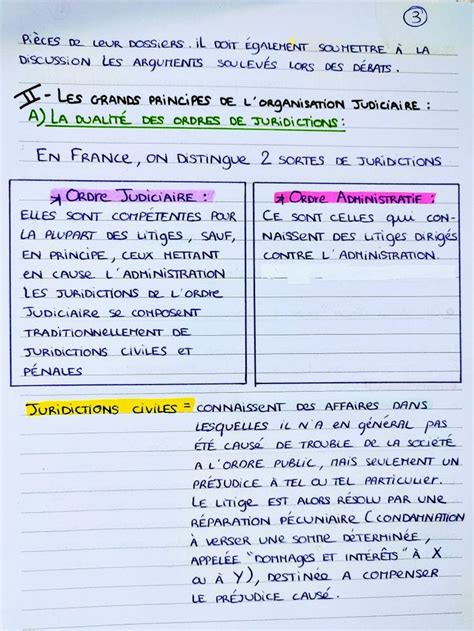 3
PIÈCES DE LEUR DOSSIERS. IL DOIT ÉGALEMENT SOUMETTRE À LA
DISCUSSION LES ARGUMENTS SOULEVÉS LORS DES DÉBATS.
II - LES GRANDS PRINCIPES DE L'ORGANISATION JUDICIAIRE :
A) LA DUALITÉ DES ORDRES DE JURIDICTIONS :
EN FRANCE, ON DISTINGUE 2 SORTES DE JURIDICTIONS
→ ORDRE JUDICIAIRE :
ELLES SONT COMPÉTENTES POUR
LA PLUPART DES LITIGES, SAUF,
EN PRINCIPE, CEUX METTANT
EN CAUSE L'ADMINISTRATION
LES JURIDICTIONS DE L'ORDRE
JUDICIAIRE SE COMPOSENT
TRADITIONNELLEMENT DE
JURIDICTIONS CIVILES ET
PÉNALES
→ ORDRE ADMINISTRATIF :
CE SONT CELLES QUI CON-
NAISSENT DES LITIGES DIRIGÉS
CONTRE L'ADMINISTRATION.
JURIDICTIONS CIVILES = CONNAISSENT DES AFFAIRES DANS
LESQUELLES IL N'A EN GÉNÉRAL PAS
ÉTÉ CAUSÉ DE TROUBLE DE LA SOCIÉTÉ
A L'ORDRE PUBLIC, MAIS SEULEMENT UN
PRÉJUDICE À TEL OU TEL PARTICULIER.
LE LITIGE EST ALORS RÉSOLU PAR UNE
RÉPARATION PÉCUNIAIRE (CONDAMNATION
À VERSER UNE SOMME DÉTERMINÉE,
APPELÉE "DOMMAGES ET INTÉRÊTS" À X
OU À Y), DESTINÉE A COMPENSER
LE PRÉJUDICE CAUSÉ.